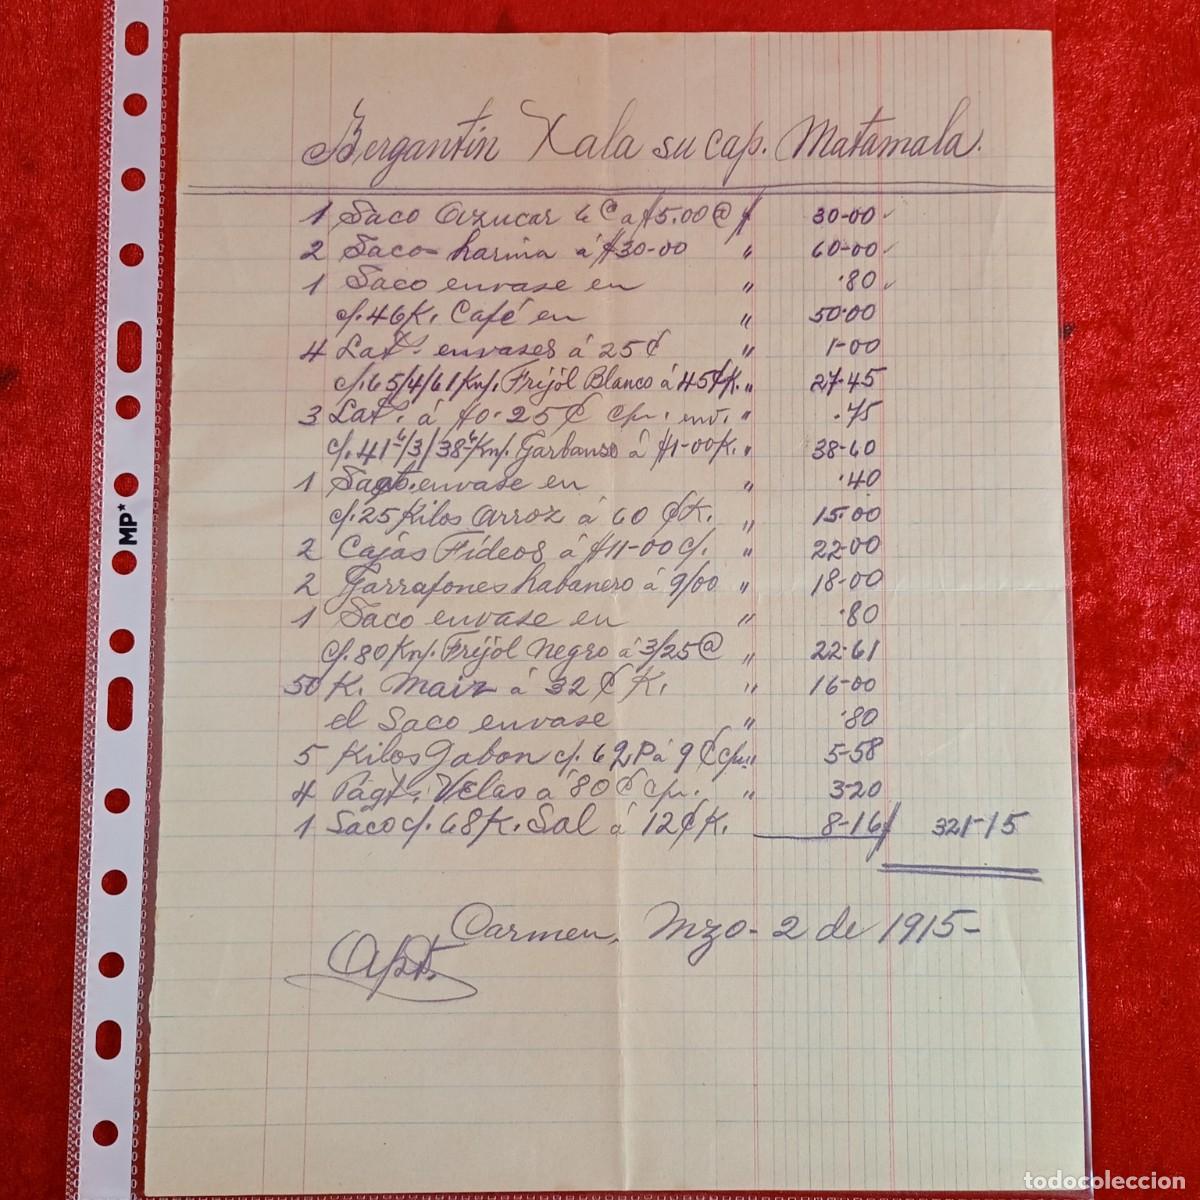 Bergantín Xala su cap. Matamala.
1 Saco Azucar 6 @ a $5.00 @ $ 30-00
2 Saco harina á $30-00 " 60-00
1 Saco envase en " .80
c/. 46 K. Café en " 50.00
4 Lats. envases á 25 ¢ " 1-00
c/. 65/4/61 Kn/. Frijól Blanco á 45 ¢ K. " 27-45
3 Lats. á $0.25 ¢ c/u. env. " .75
c/. 41⁶/3/38⁶ Kn/. Garbanso á $1-00 K. " 38-60
1 envase en " .40
c/. 25 Kilos Arroz á 60 ¢ K. " 15.00
2 Cajás Fideos á $11-00 c/. " 22-00
2 Garrafones habanero á 9/00 " 18-00
1 Saco envase en " .80
c/. 80 Kn/. Frijól Negro á 3/25 @ " 22-61
50 K. Maiz á 32 ¢ K. " 16-00
el Saco envase " .80
5 Kilos Jabon c/. 62 P á 9 ¢ c/u. " 5-58
4 Paqts. Velas á 80 ¢ c/u. " 3.20
1 Saco c/. 68 K. Sal á 12 ¢ K. 8-16 321-15
Carmen, Mzo - 2 de 1915 -
MP*
todocoleccion